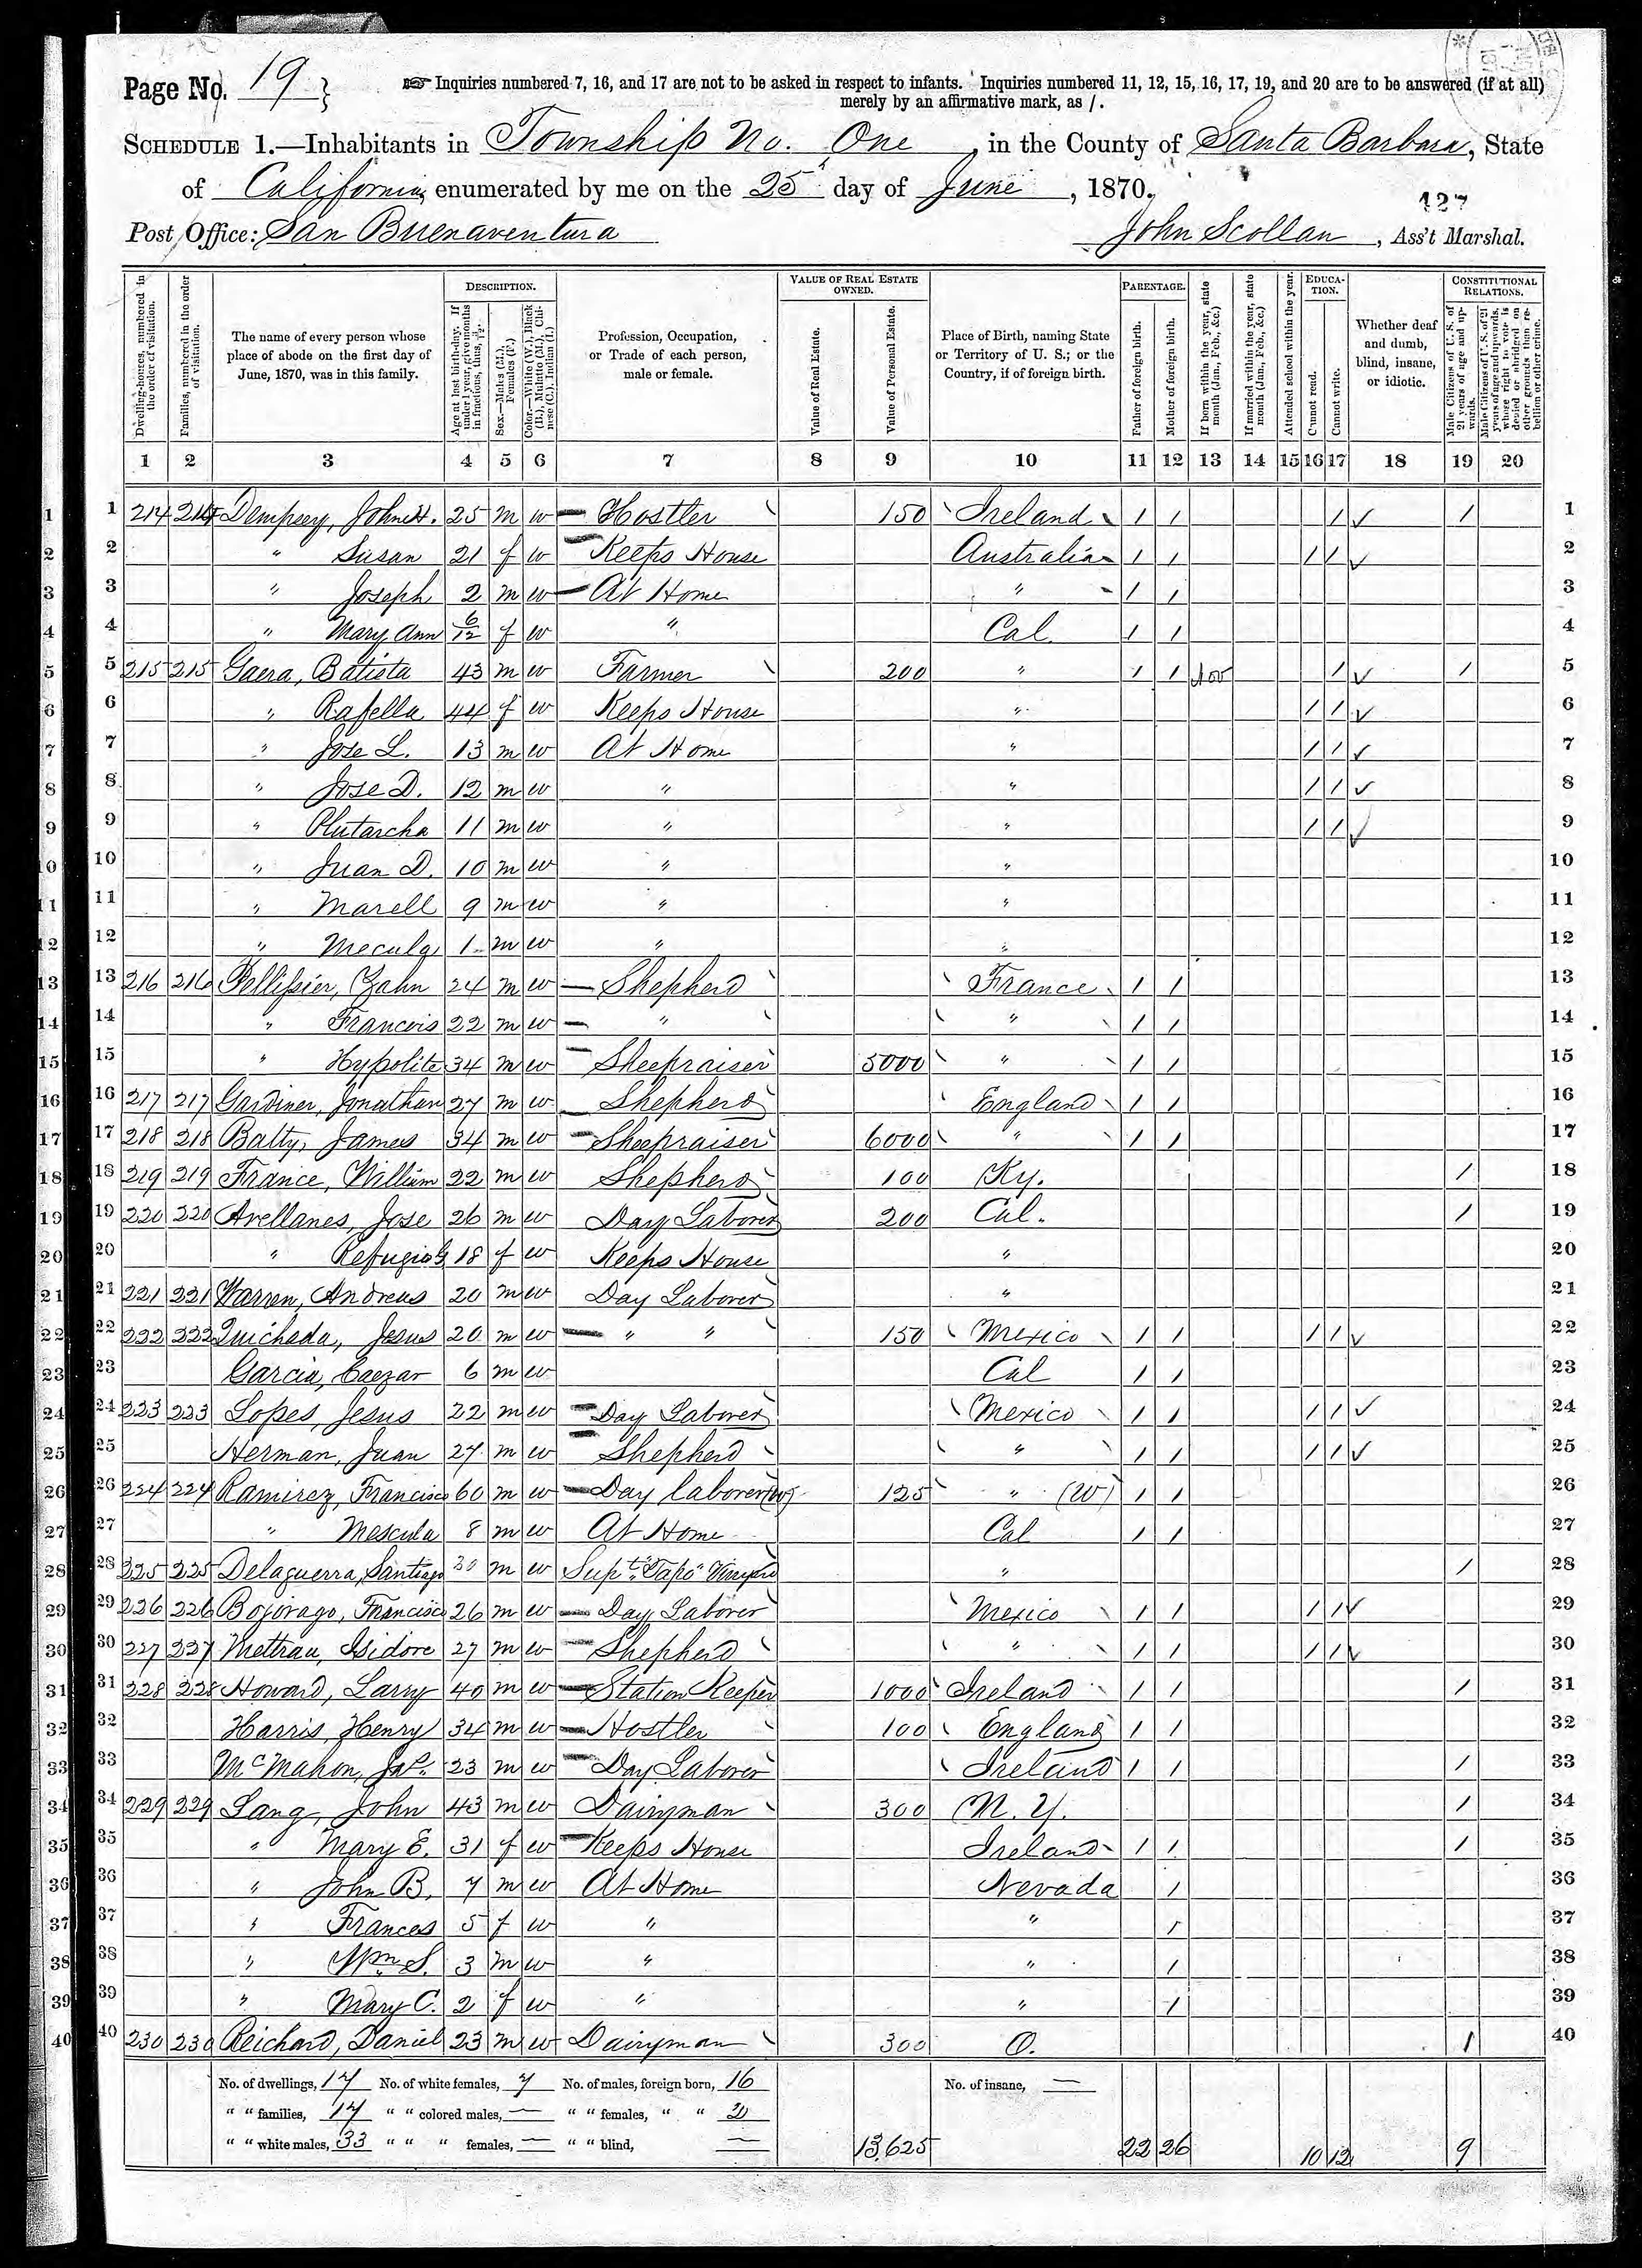 Page No. 19 } ☞ Inquiries numbered 7, 16, and 17 are not to be asked in respect to infants. Inquiries numbered 11, 12, 15, 16, 17, 19, and 20 are to be answered (if at all)
merely by an affirmative mark, as /.
SCHEDULE 1.—Inhabitants in Township No. One, in the County of Santa Barbara, State
of California, enumerated by me on the 25 day of June, 1870.
127
Post Office: San Buenaventura John Scollan, Ass't Marshal.
Dwelling-houses, numbered in the order of visitation.
Families, numbered in the order of visitation.
The name of every person whose place of abode on the first day of June, 1870, was in this family.
DESCRIPTION.
Age at last birth-day. If under 1 year, give months in fractions, thus, 3/12.
Sex.—Males (M.), Females (F.)
Color.—White (W.), Black (B.), Mulatto (M.), Chinese (C.), Indian (I.)
Profession, Occupation, or Trade of each person, male or female.
VALUE OF REAL ESTATE OWNED.
Value of Real Estate.
Value of Personal Estate.
Place of Birth, naming State or Territory of U. S.; or the Country, if of foreign birth.
PARENTAGE.
Father of foreign birth.
Mother of foreign birth.
If born within the year, state month (Jan., Feb., &c.)
If married within the year, state month (Jan., Feb., &c.)
Attended school within the year.
EDUCATION.
Cannot read.
Cannot write.
Whether deaf and dumb, blind, insane, or idiotic.
CONSTITUTIONAL RELATIONS.
Male Citizens of U. S. of 21 years of age and upwards.
Male Citizens of U. S. of 21 years of age and upwards, whose right to vote is denied or abridged on other grounds than rebellion or other crime.
1 2 3 4 5 6 7 8 9 10 11 12 13 14 15 16 17 18 19 20
1 214 214 Dempsey, John H. 25 m w Hostler 150 Ireland / / / ✓ / 1
2 " Susan 21 f w Keeps House Australia / / / / ✓ 2
3 " Joseph 2 m w At Home " / / 3
4 " Mary Ann 6/12 f w " Cal. / / 4
5 215 215 Gaera, Batista 43 m w Farmer 200 " / / Nov / ✓ / 5
6 " Rafella 44 f w Keeps House " / / ✓ 6
7 " Jose L. 13 m w At Home " / / ✓ 7
8 " Jose D. 12 m w " " / / ✓ 8
9 " Plutarcha 11 m w " " / / ✓ 9
10 " Juan D. 10 m w " " 10
11 " Marell 9 m w " " 11
12 " Mecula 1 m w " " 12
13 216 216 Pellissier, Zahn 24 m w Shepherd France / / 13
14 " Francois 22 m w " " / / 14
15 " Hypolite 34 m w Sheepraiser 5000 " / / 15
16 217 217 Gardiner, Jonathan 27 m w Shepherd England / / 16
17 218 218 Balty, James 34 m w Sheepraiser 6000 " / / 17
18 219 219 France, William 22 m w Shepherd 100 Ky. / 18
19 220 220 Arellanes, Jose 26 m w Day Laborer 200 Cal. / 19
20 " Refugia 18 f w Keeps House " 20
21 221 221 Warren, Andreas 20 m w Day Laborer " 21
22 222 222 Quichada, Jesus 20 m w " " 150 Mexico / / / / ✓ 22
23 Garcia, Caezar 6 m w Cal / / 23
24 223 223 Lopes, Jesus 22 m w Day Laborer Mexico / / / / ✓ 24
25 Herman, Juan 27 m w Shepherd " / / / / ✓ 25
26 224 224 Ramirez, Francisco 60 m w Day laborer (W) 125 " (W) / / 26
27 " Mescula 8 m w At Home Cal / / 27
28 225 225 Delaguerra, Santiago 30 m w Supt. "Tapo" Vineyard " / 28
29 226 226 Bojorago, Francisco 26 m w Day Laborer Mexico / / / / ✓ 29
30 227 227 Mettrau, Isidore 27 m w Shepherd " / / / / ✓ 30
31 228 228 Howard, Larry 40 m w Station Keeper 1000 Ireland / / / 31
32 Harris, Henry 34 m w Hostler 100 England / / 32
33 McMahon, Jas. 23 m w Day Laborer Ireland / / / 33
34 229 229 Lang, John 43 m w Dairyman 300 N. Y. / 34
35 " Mary E. 31 f w Keeps House Ireland / / / 35
36 " John B. 7 m w At Home Nevada / 36
37 " Frances 5 f w " " / 37
38 " Wm. S. 3 m w " " / 38
39 " Mary C. 2 f w " " / 39
40 230 230 Reichard, Daniel 23 m w Dairyman 300 O. / 40
No. of dwellings, 17 No. of white females, 7 No. of males, foreign born, 16 No. of insane, —
" " families, 17 " " colored males, — " " females, " " 2
" " white males, 33 " " " females, — " " blind, — 13,625 22 26 10 12 9